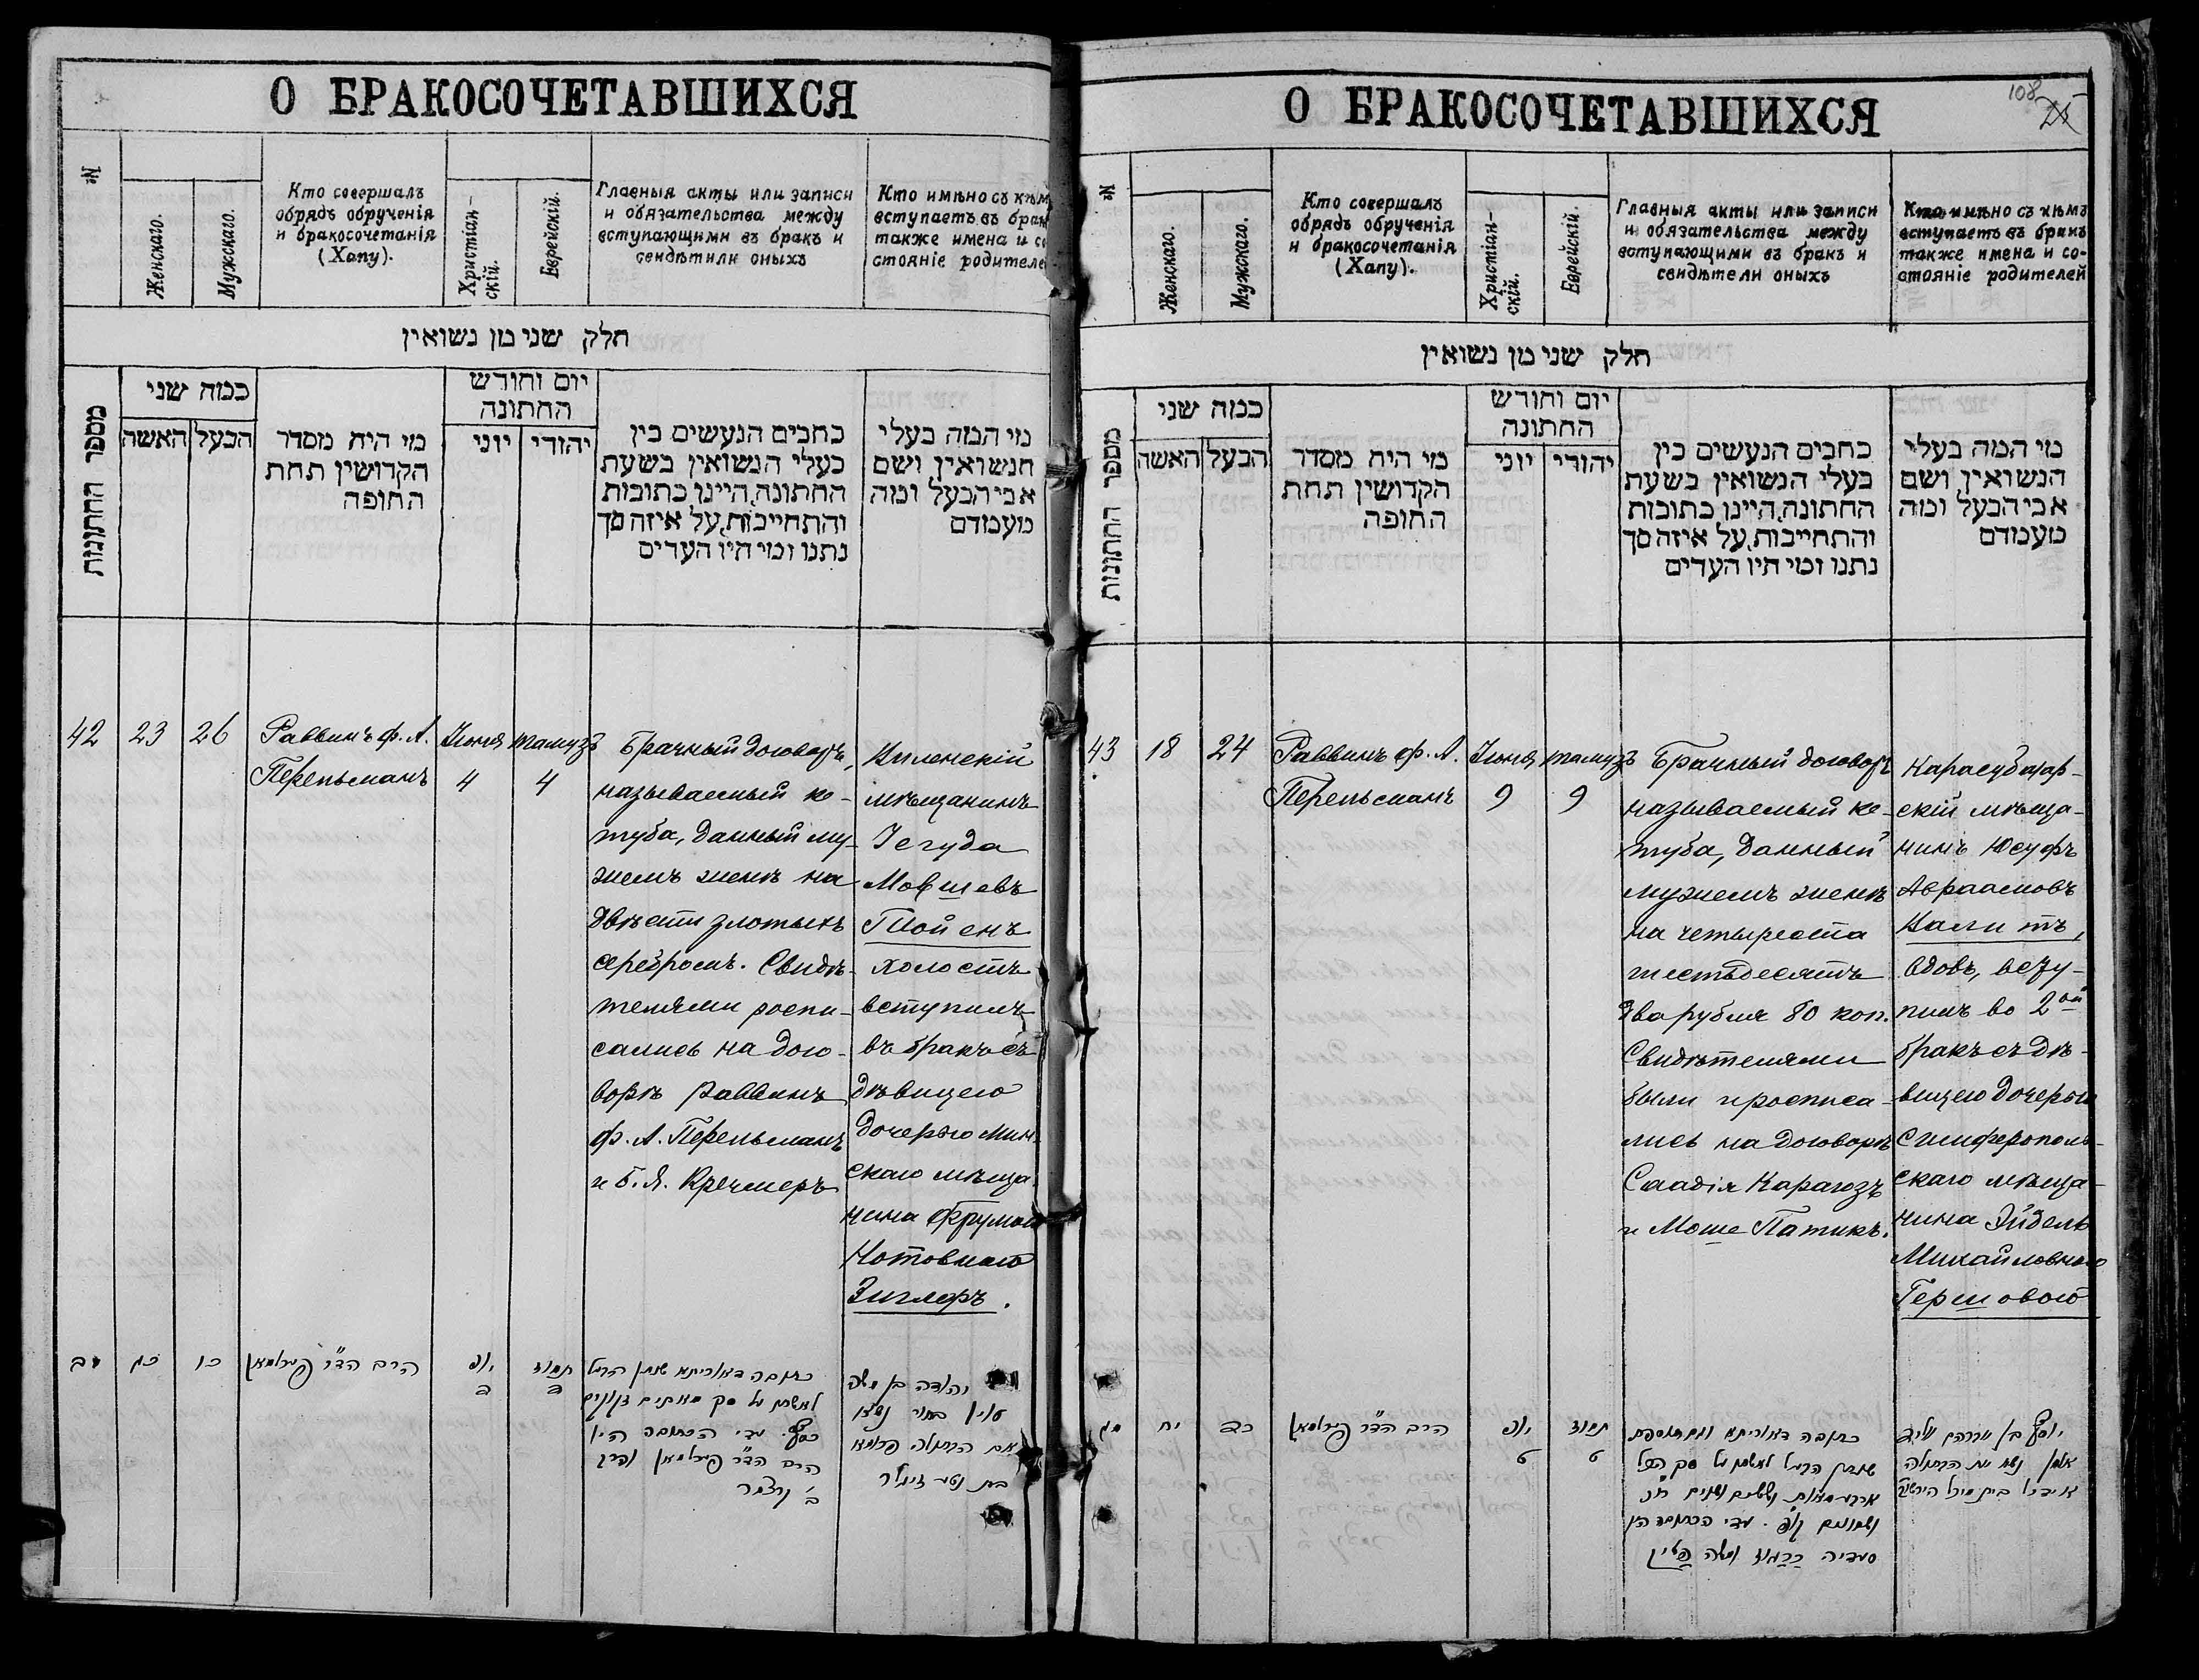 О БРАКОСОЧЕТАВШИХСЯ
№
Женскаго.
Мужскаго.
Кто совершалъ
обрядъ обрученія
и бракосочетанія
(Хапу).
Христіан-
скій.
Еврейскій.
Главныя акты или записи
и обязательства между
вступающими въ бракъ и
свидѣтели оныхъ
Кто имѣно съ кѣмъ
вступаетъ въ бракъ
также имена и со
стояніе родителе
חלק שני מן נשואין
מספר החתונות
כמה שני
האשה
הבעל
מי היה מסדר
הקדושין תחת
החופה
יום וחודש
החתונה
יוני
יהודי
כתבים הנעשים בין
בעלי הנשואין בשעת
החתונה, היינו כתובות
והתחייבות, על איזה סך
נתנו ומי היו העדים
מי המה בעלי
הנשואין ושם
אבי הבעל ומה
מעמדם
42
23
26
Раввинъ ф. А.
Перельманъ
Іюня
4
тамузъ
4
Брачный договоръ,
называемый ке-
туба, данный му-
жемъ женѣ на
двѣсти злотыхъ
серебромъ. Свидѣ-
телями роспи-
сались на дого-
ворѣ Раввинъ
ф. А. Перельманъ
и Б. Я. Кречмеръ
Виленскій
мѣщанинъ
Іегуда
Мовшевъ
холостъ
вступилъ
въ бракъ съ
дѣвицею
дочерью Мин-
скаго мѣща-
нина Фрумою
Нотовною
Зиглеръ.
מב
כג
כו
הרב הד"ר פערלמאן
יוני
ד
תמוז
ד
כתובה דאורייתא שנתן הבעל
לאשתו על סך מאתים זהובים
כסף. עדי הכתובה היו
הרב הד"ר פערלמאן והרב
ב' קרצמר
יהודה בן משה
בחור נשא
את הבתולה פרומא
בת נטע זיגלר
О БРАКОСОЧЕТАВШИХСЯ
108
№
Женскаго.
Мужскаго.
Кто совершалъ
обрядъ обрученія
и бракосочетанія
(Хапу).
Христіан-
скій.
Еврейскій.
Главныя акты или записи
и обязательства между
вступающими въ бракъ и
свидѣтели оныхъ
Кто имѣно съ кѣмъ
вступаетъ въ бракъ
также имена и со-
стояніе родителей
חלק שני מן נשואין
מספר החתונות
כמה שני
האשה
הבעל
מי היה מסדר
הקדושין תחת
החופה
יום וחודש
החתונה
יוני
יהודי
כתבים הנעשים בין
בעלי הנשואין בשעת
החתונה, היינו כתובות
והתחייבות, על איזה סך
נתנו ומי היו העדים
מי המה בעלי
הנשואין ושם
אבי הבעל ומה
מעמדם
43
18
24
Раввинъ ф. А.
Перельманъ
Іюня
9
тамузъ
9
Брачный договоръ
называемый ке-
туба, данный
мужемъ женѣ
на четыреста
шестьдесятъ
два рубля 80 коп.
Свидѣтелями
были и росписа-
лись на договорѣ
Саадія Карагозъ
и Моше Патикъ.
Карасубазар-
скій мѣща-
нинъ Юсуфъ
Авраамовъ
Валитъ,
вдовъ, всту-
пилъ во 2ой
бракъ съ дѣ-
вицею дочерью
Симферополь-
скаго мѣща-
нина Эйдель
Михайловною
Гершовою
מג
יח
כד
הרב הד"ר פערלמאן
יוני
ט
תמוז
ט
כתובה דאורייתא ותוספת
שנתן הבעל לאשתו על סך הכל
ארבע מאות וששים ושנים
ושמונים קאפ. עדי הכתובה היו
סעדיה
יוסף בן אברהם
אלמן נשא את הבתולה